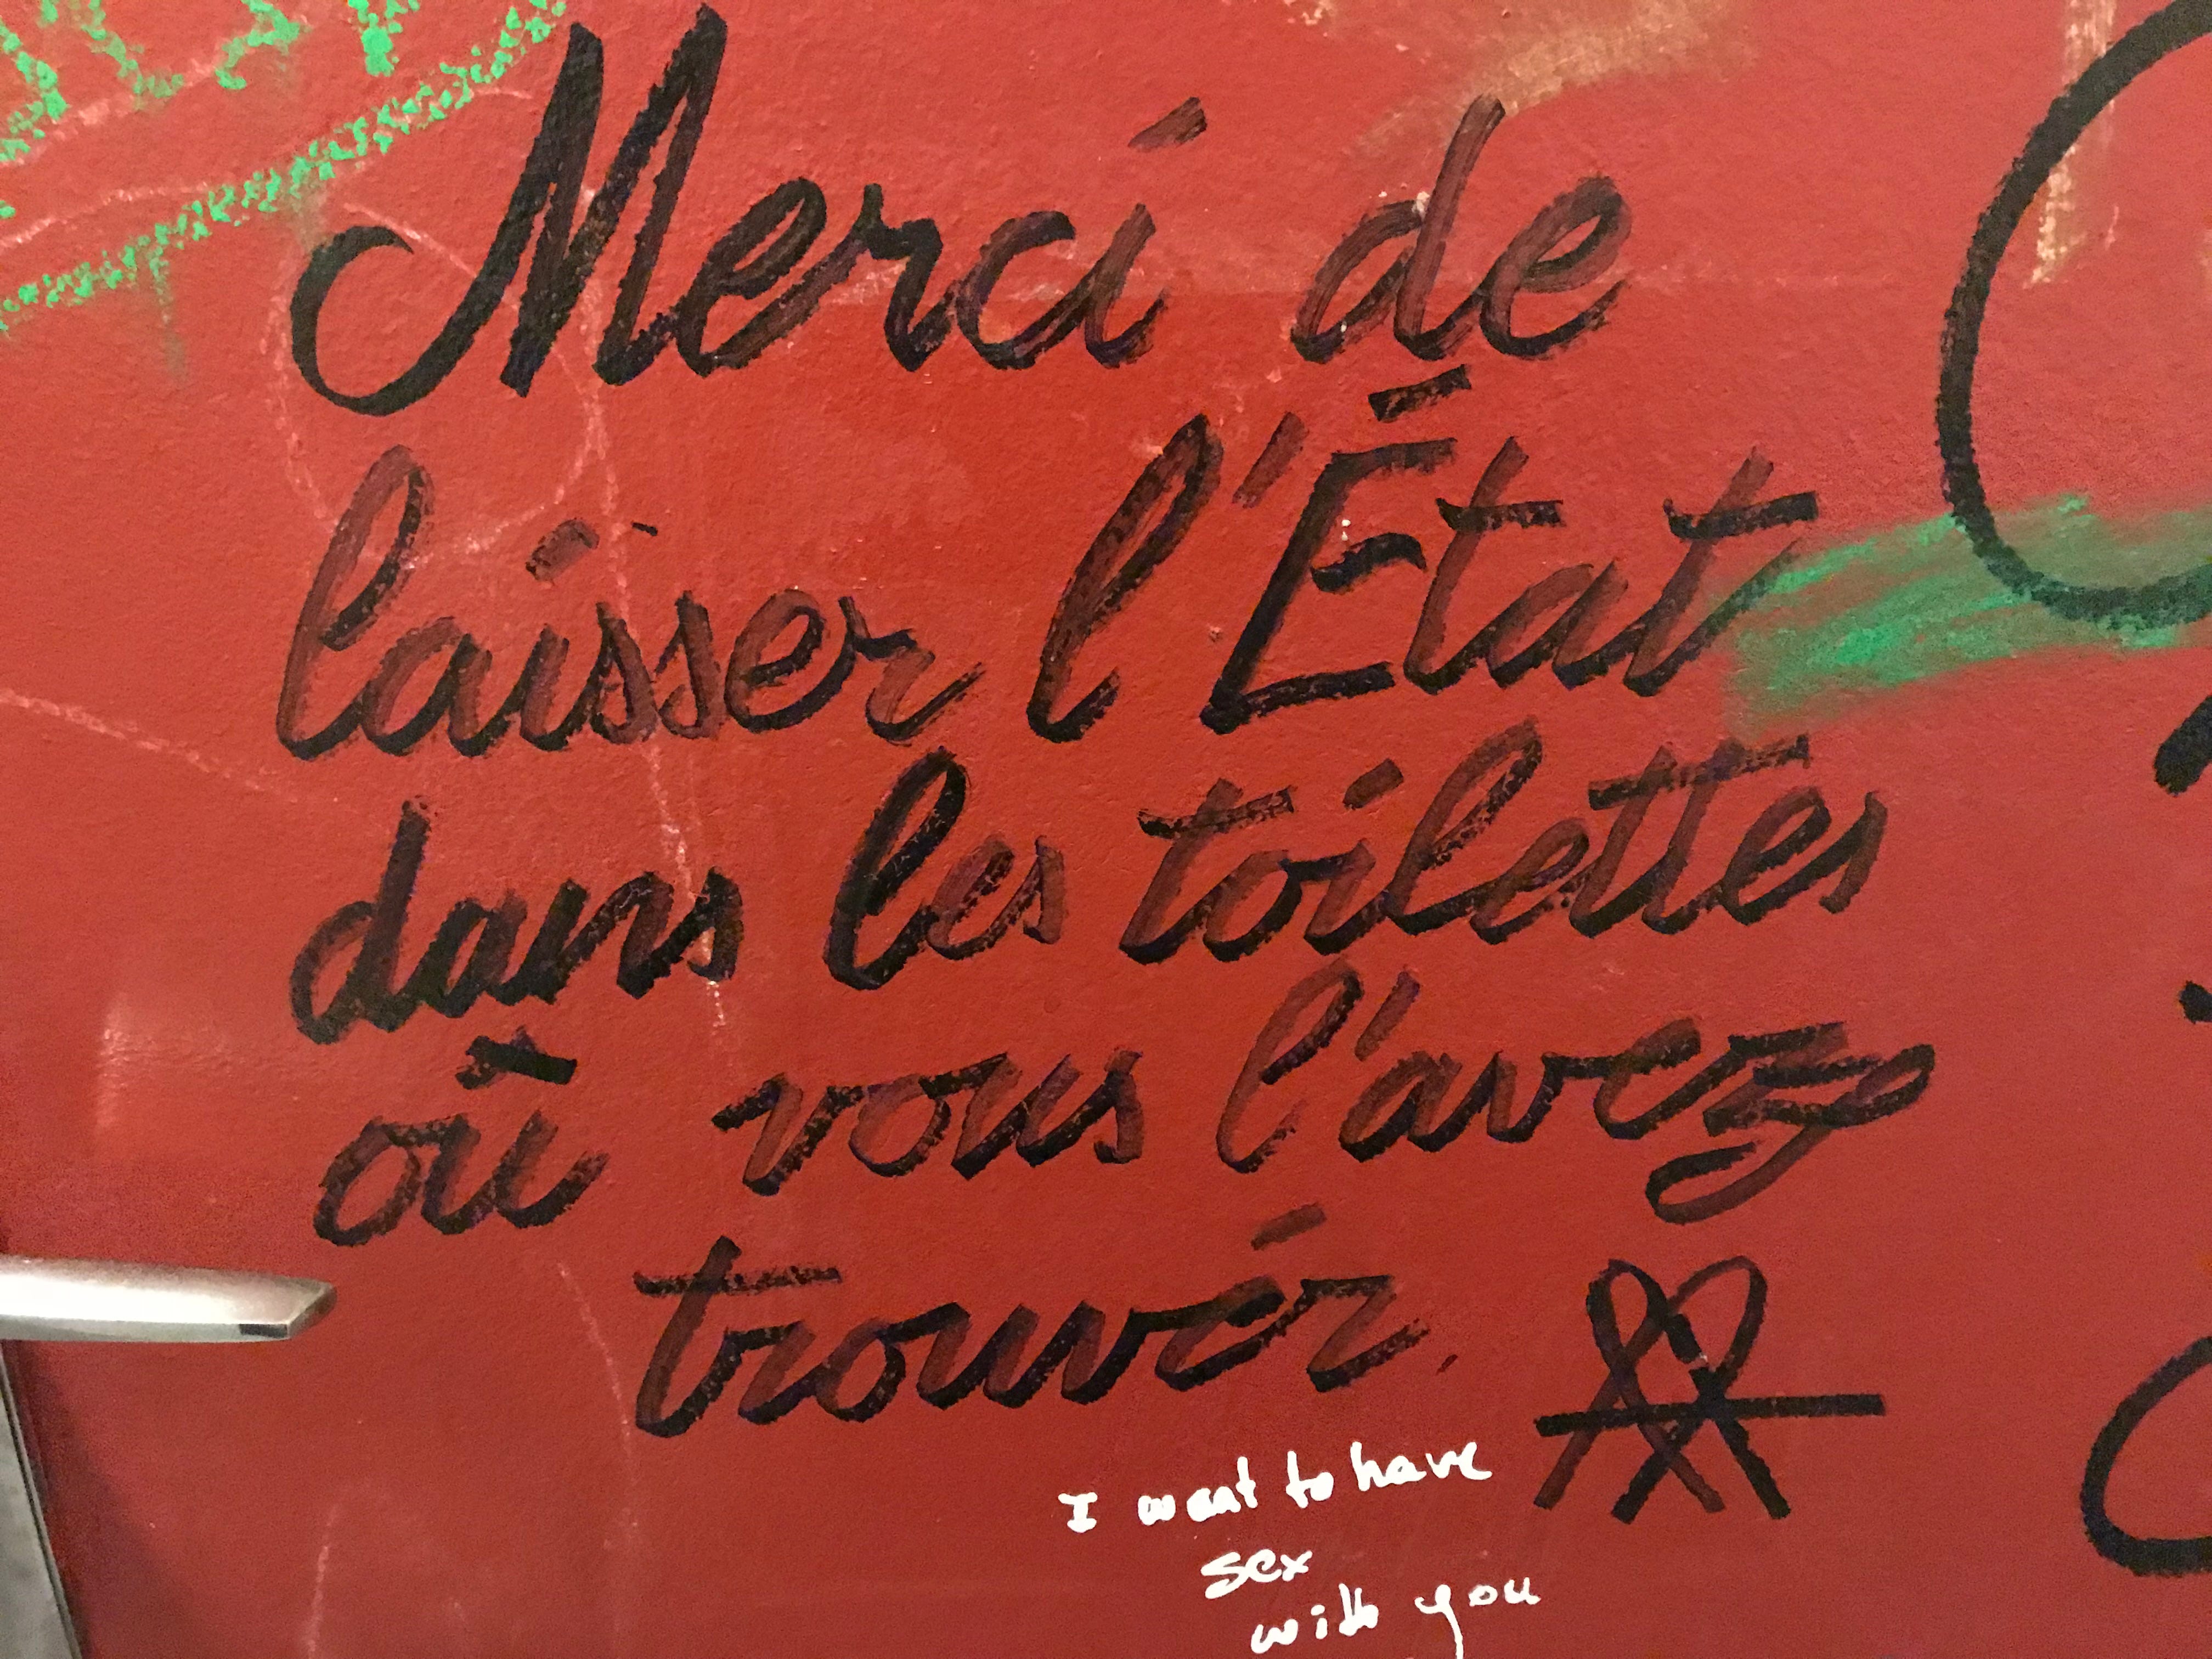 Merci de
laisser l'État
dans les toilettes
où vous l'avez
trouvér.
I want to have
sex
with you